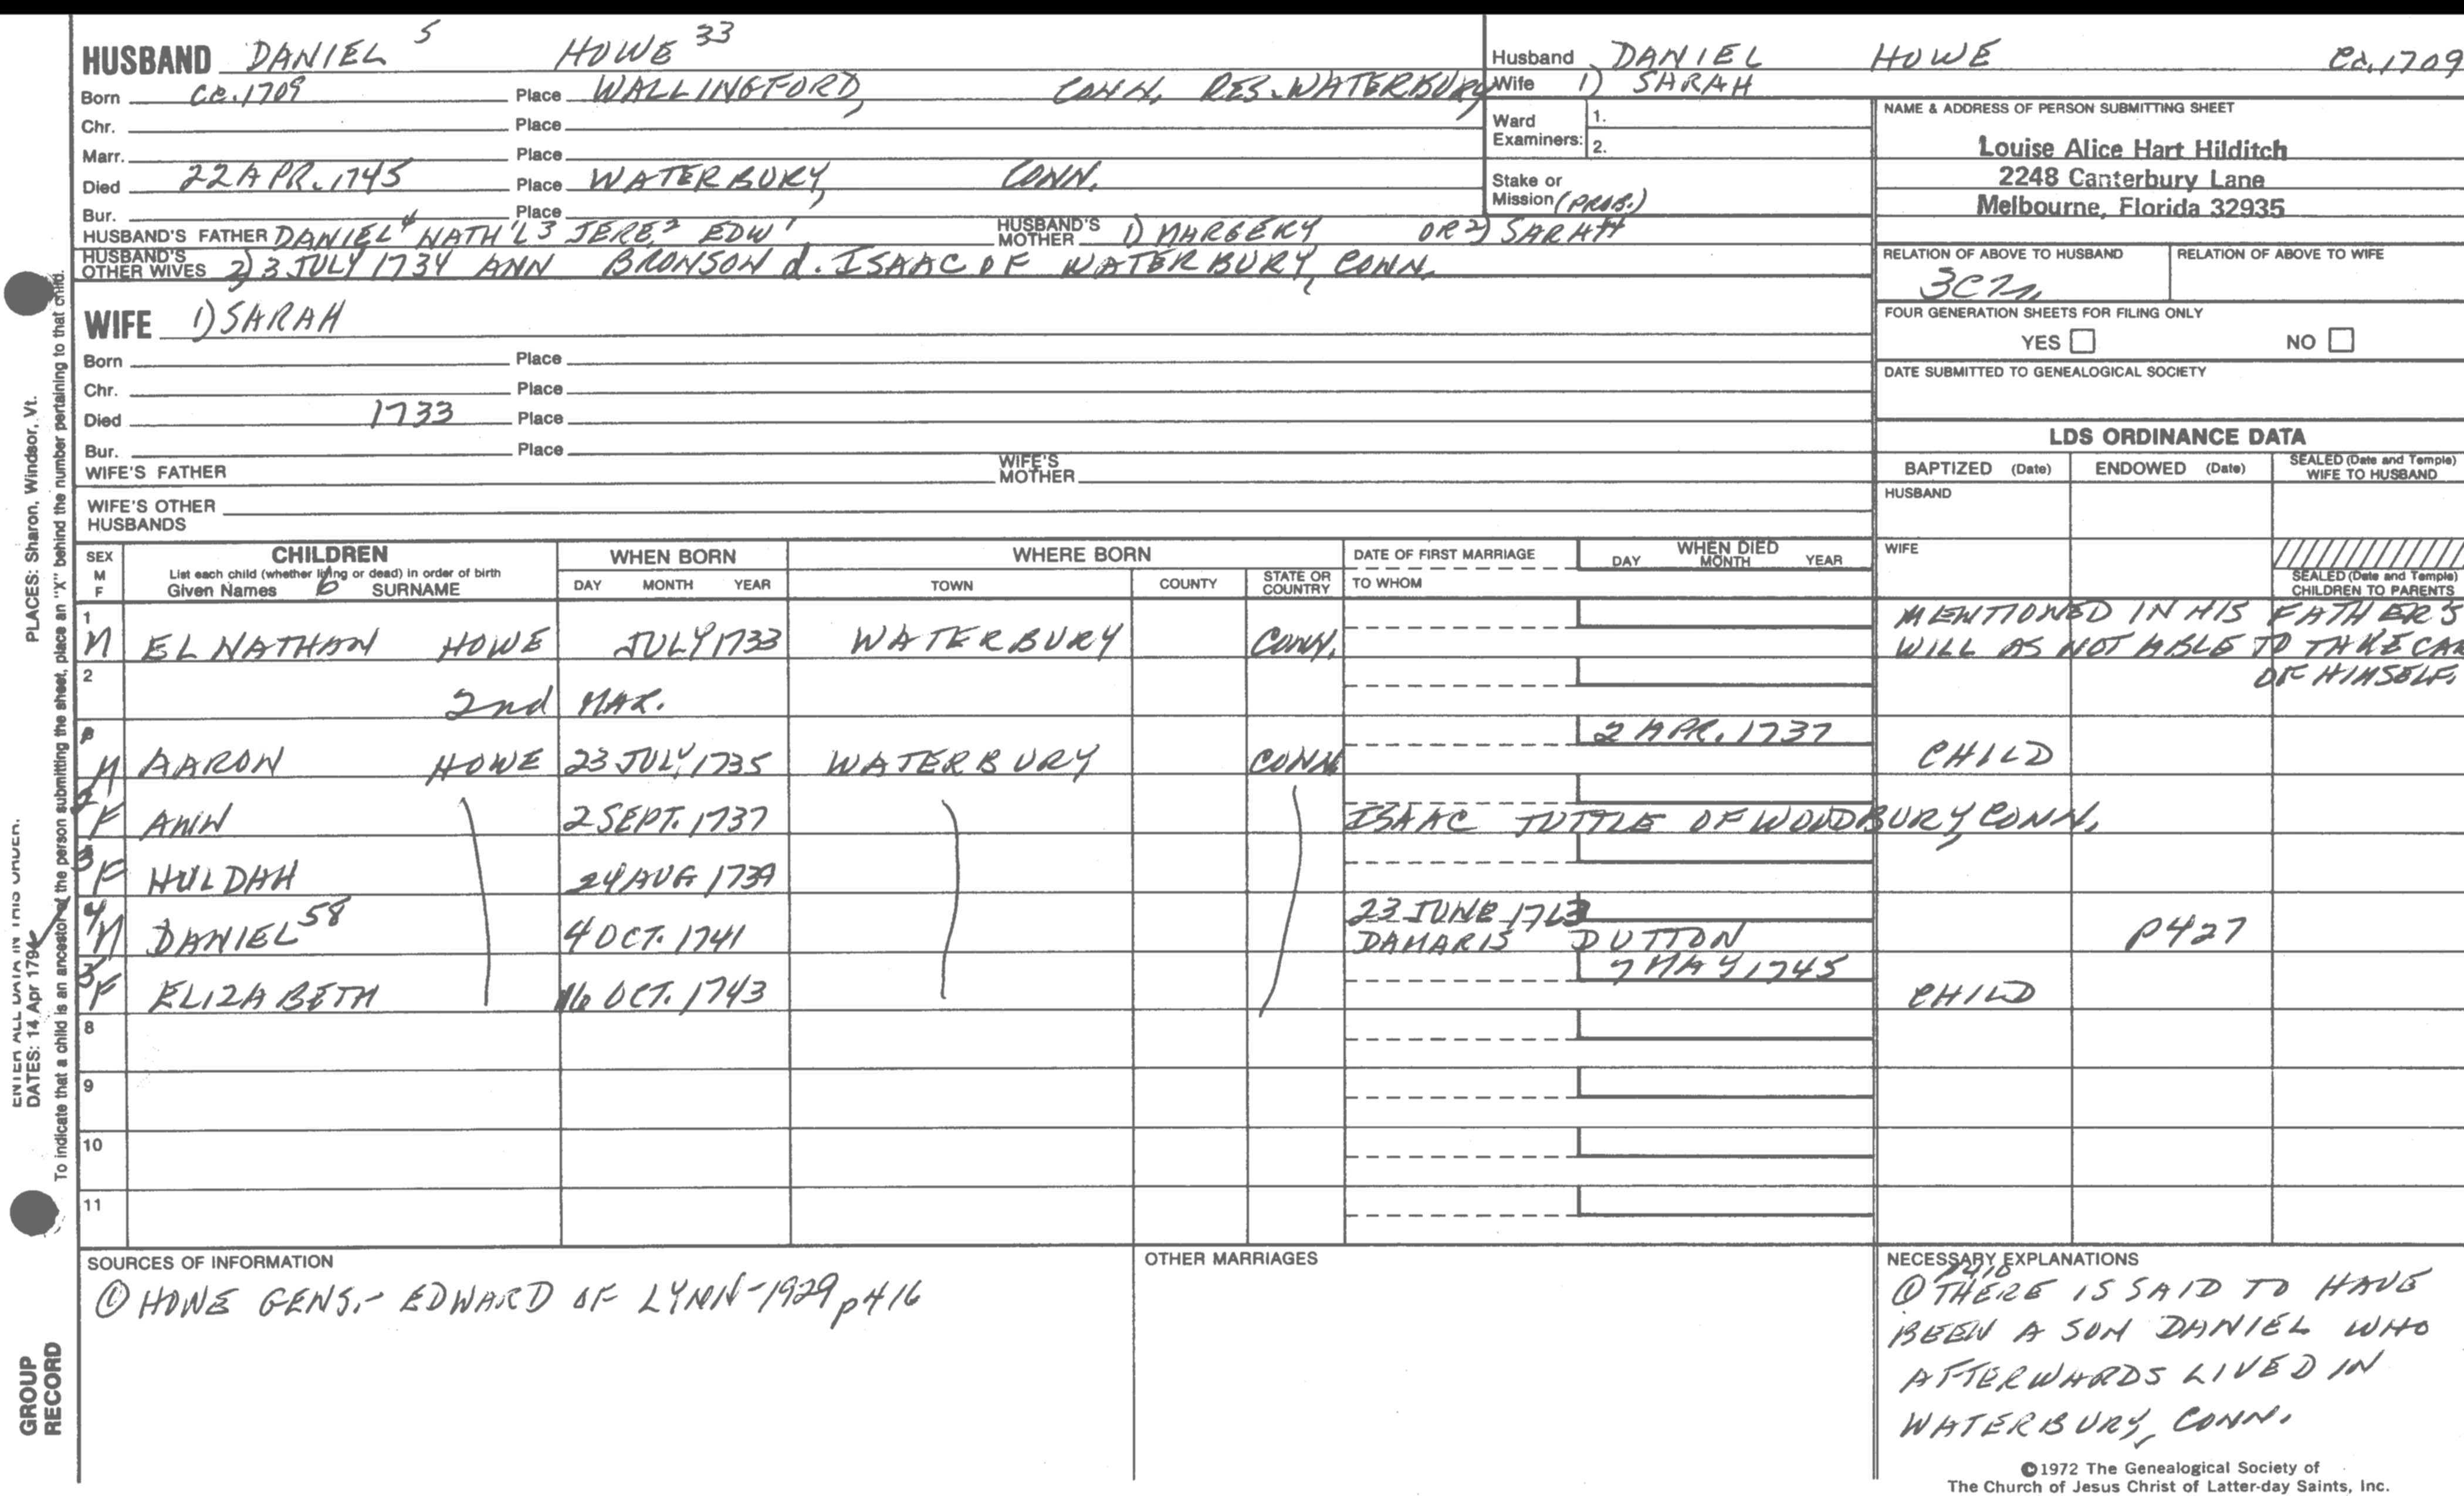 HUSBAND DANIEL 5 HOWE 33
Born ca. 1709 Place WALLINGFORD, CONN. RES. WATERBURY,
Chr. Place
Marr. Place
Died 22 APR. 1745 Place WATERBURY, CONN.
Bur. Place
HUSBAND'S FATHER DANIEL 4 NATH'L 3 JERE. 2 EDW 1 HUSBAND'S MOTHER 1) MARGERY OR 2) SARAH
HUSBAND'S OTHER WIVES 2) 3 JULY 1734 ANN BRONSON d. ISAAC OF WATERBURY, CONN.
WIFE 1) SARAH
Born Place
Chr. Place
Died 1733 Place
Bur. Place
WIFE'S FATHER WIFE'S MOTHER
WIFE'S OTHER HUSBANDS
Husband DANIEL HOWE ca. 1709
Wife 1) SARAH
Ward Examiners: 1.
2.
Stake or Mission (PROB.)
NAME & ADDRESS OF PERSON SUBMITTING SHEET
Louise Alice Hart Hilditch
2248 Canterbury Lane
Melbourne, Florida 32935
RELATION OF ABOVE TO HUSBAND RELATION OF ABOVE TO WIFE
FOUR GENERATION SHEETS FOR FILING ONLY
YES NO
DATE SUBMITTED TO GENEALOGICAL SOCIETY
LDS ORDINANCE DATA
BAPTIZED (Date) ENDOWED (Date) SEALED (Date and Temple) WIFE TO HUSBAND
HUSBAND
WIFE
SEALED (Date and Temple) CHILDREN TO PARENTS
SEX M F CHILDREN WHEN BORN WHERE BORN DATE OF FIRST MARRIAGE WHEN DIED
List each child (whether living or dead) in order of birth DAY MONTH YEAR TOWN COUNTY STATE OR COUNTRY TO WHOM DAY MONTH YEAR
Given Names 6 SURNAME
1 M ELNATHAN HOWE JULY 1733 WATERBURY CONN. MENTIONED IN HIS FATHER'S
WILL AS NOT ABLE TO TAKE CAR
OF HIMSELF.
2 2nd MAR.
M AARON HOWE 23 JULY 1735 WATERBURY CONN 2 APR. 1737 CHILD
2 F ANN 2 SEPT. 1737 ISAAC TUTTLE OF WOODBURY, CONN.
3 F HULDAH 24 AUG 1739
4 M DANIEL 58 4 OCT. 1741 23 JUNE 1763 DAMARIS DUTTON P427
5 F ELIZABETH 16 OCT. 1743 7 MAY 1745 CHILD
8
9
10
11
SOURCES OF INFORMATION
① HOWE GENS. - EDWARD OF LYNN - 1929 p416
OTHER MARRIAGES
NECESSARY EXPLANATIONS
p410
① THERE IS SAID TO HAVE
BEEN A SON DANIEL WHO
AFTERWARDS LIVED IN
WATERBURY, CONN.
©1972 The Genealogical Society of
The Church of Jesus Christ of Latter-day Saints, Inc.
PLACES: Sharon, Windsor, Vt.
ENTER ALL DATA IN THIS ORDER.
DATES: 14 Apr 1794
To indicate that a child is an ancestor of the person submitting the sheet, place an "X" behind the number pertaining to that child.
GROUP
RECORD